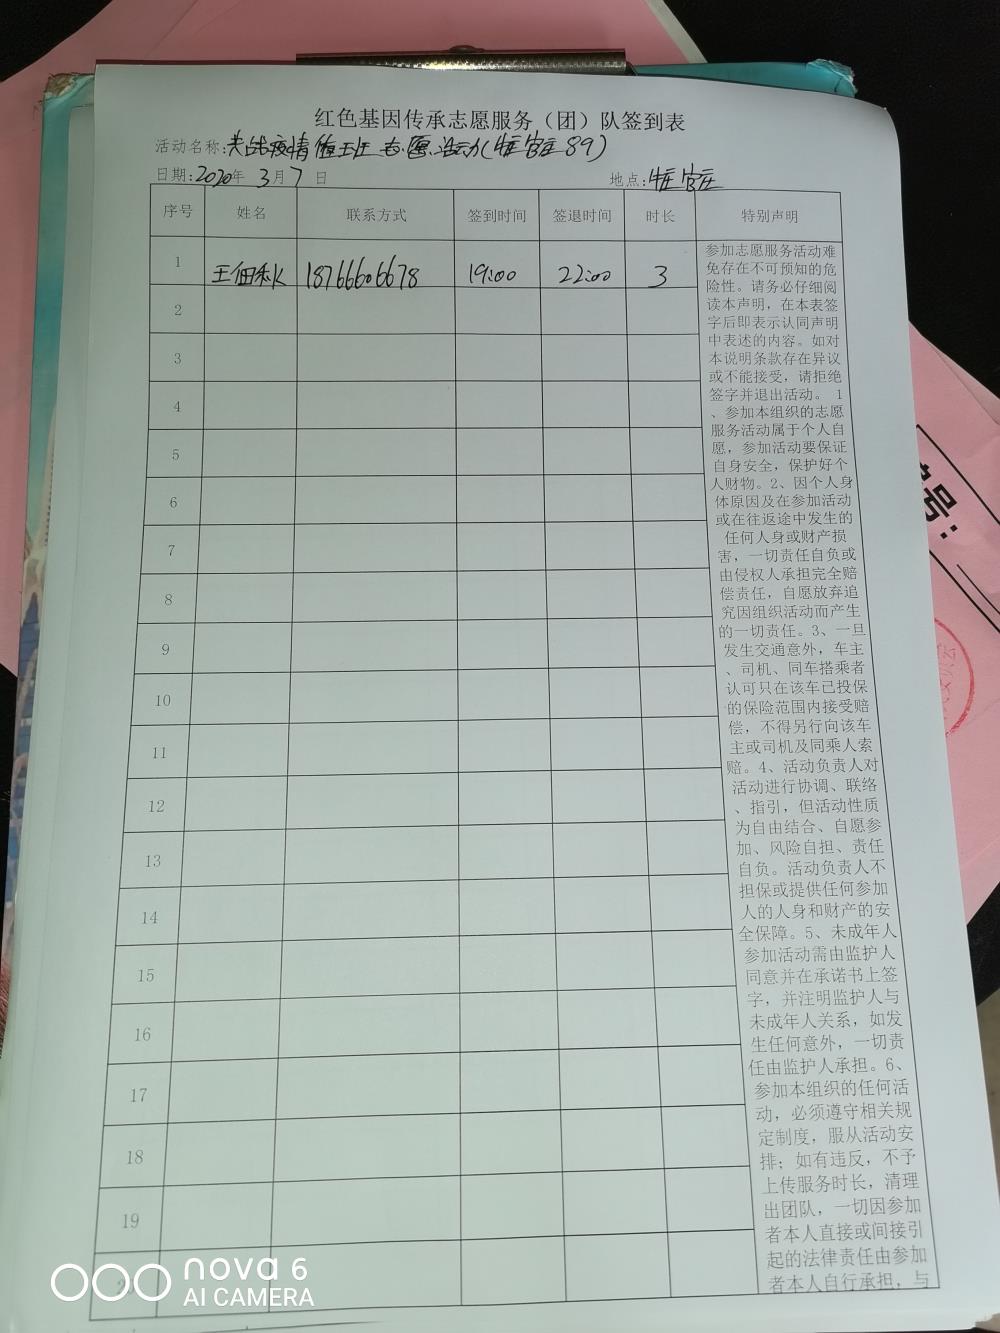 红色基因传承志愿服务（团）队签到表
活动名称:关战疫情值班志愿活动(牛庄官庄89)
日期:2020年 3月 7 日 地点:牛庄官庄
序号 姓名 联系方式 签到时间 签退时间 时长 特别声明
1 王佃秋 18766606678 19:00 22:00 3
2
3
4
5
6
7
8
9
10
11
12
13
14
15
16
17
18
19
20
参加志愿服务活动难
免存在不可预知的危
险性。请务必仔细阅
读本声明，在本表签
字后即表示认同声明
中表述的内容。如对
本说明条款存在异议
或不能接受，请拒绝
签字并退出活动。 1
、参加本组织的志愿
服务活动属于个人自
愿，参加活动要保证
自身安全，保护好个
人财物。2、因个人身
体原因及在参加活动
或在往返途中发生的
任何人身或财产损
害，一切责任自负或
由侵权人承担完全赔
偿责任，自愿放弃追
究因组织活动而产生
的一切责任。3、一旦
发生交通意外，车主
、司机、同车搭乘者
认可只在该车已投保
的保险范围内接受赔
偿，不得另行向该车
主或司机及同乘人索
赔。4、活动负责人对
活动进行协调、联络
、指引，但活动性质
为自由结合、自愿参
加、风险自担、责任
自负。活动负责人不
担保或提供任何参加
人的人身和财产的安
全保障。5、未成年人
参加活动需由监护人
同意并在承诺书上签
字，并注明监护人与
未成年人关系，如发
生任何意外，一切责
任由监护人承担。6、
参加本组织的任何活
动，必须遵守相关规
定制度，服从活动安
排；如有违反，不予
上传服务时长，清理
出团队，一切因参加
者本人直接或间接引
起的法律责任由参加
者本人自行承担，与
号：
nova 6
AI CAMERA